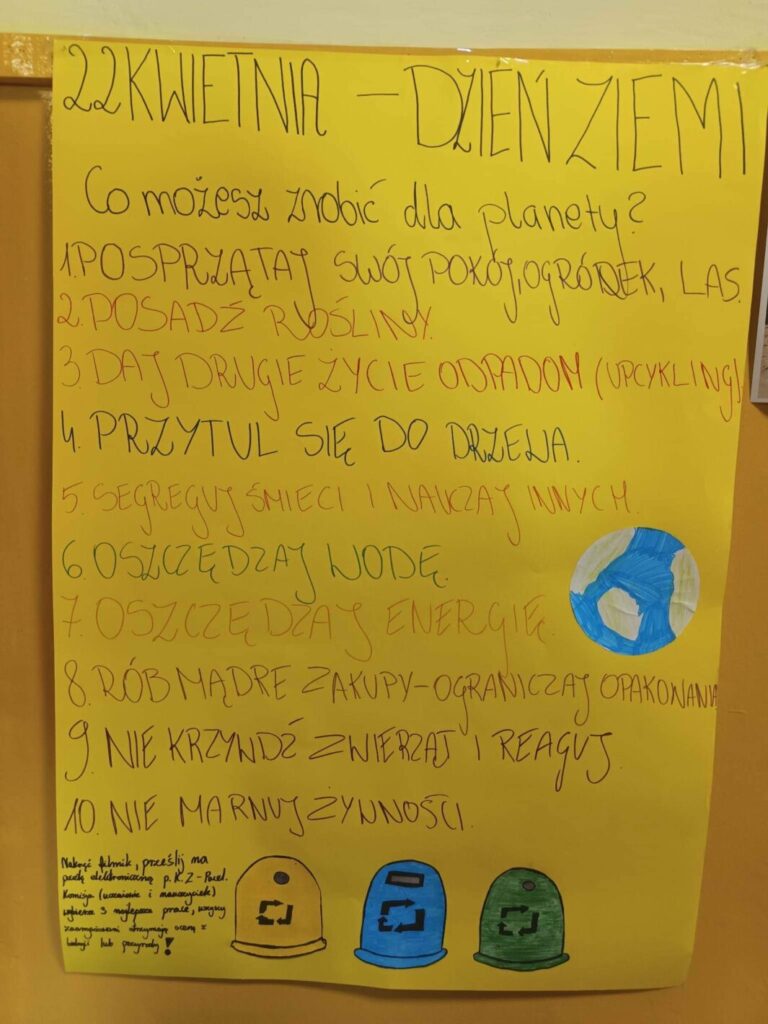 22 KWIETNIA – DZIEŃ ZIEMI
Co możesz zrobić dla planety?
1. POSPRZĄTAJ SWÓJ POKÓJ, OGRÓDEK, LAS.
2. POSADŹ ROŚLINY.
3. DAJ DRUGIE ŻYCIE ODPADOM (UPCYKLING)
4. PRZYTUL SIĘ DO DRZEWA.
5. SEGREGUJ ŚMIECI I NAUCZAJ INNYCH.
6. OSZCZĘDZAJ WODĘ.
7. OSZCZĘDZAJ ENERGIĘ.
8. RÓB MĄDRE ZAKUPY – OGRANICZAJ OPAKOWANIA
9. NIE KRZYWDŹ ZWIERZĄT I REAGUJ.
10. NIE MARNUJ ŻYWNOŚCI.
Nakręć filmik, prześlij na
pocztę elektroniczną p. K. Z-
Komisja (uczniowie i nauczyciele)
wybierze 3 najlepsze prace, wszyscy
zaangażowani otrzymają ocenę z
lub przyrody!